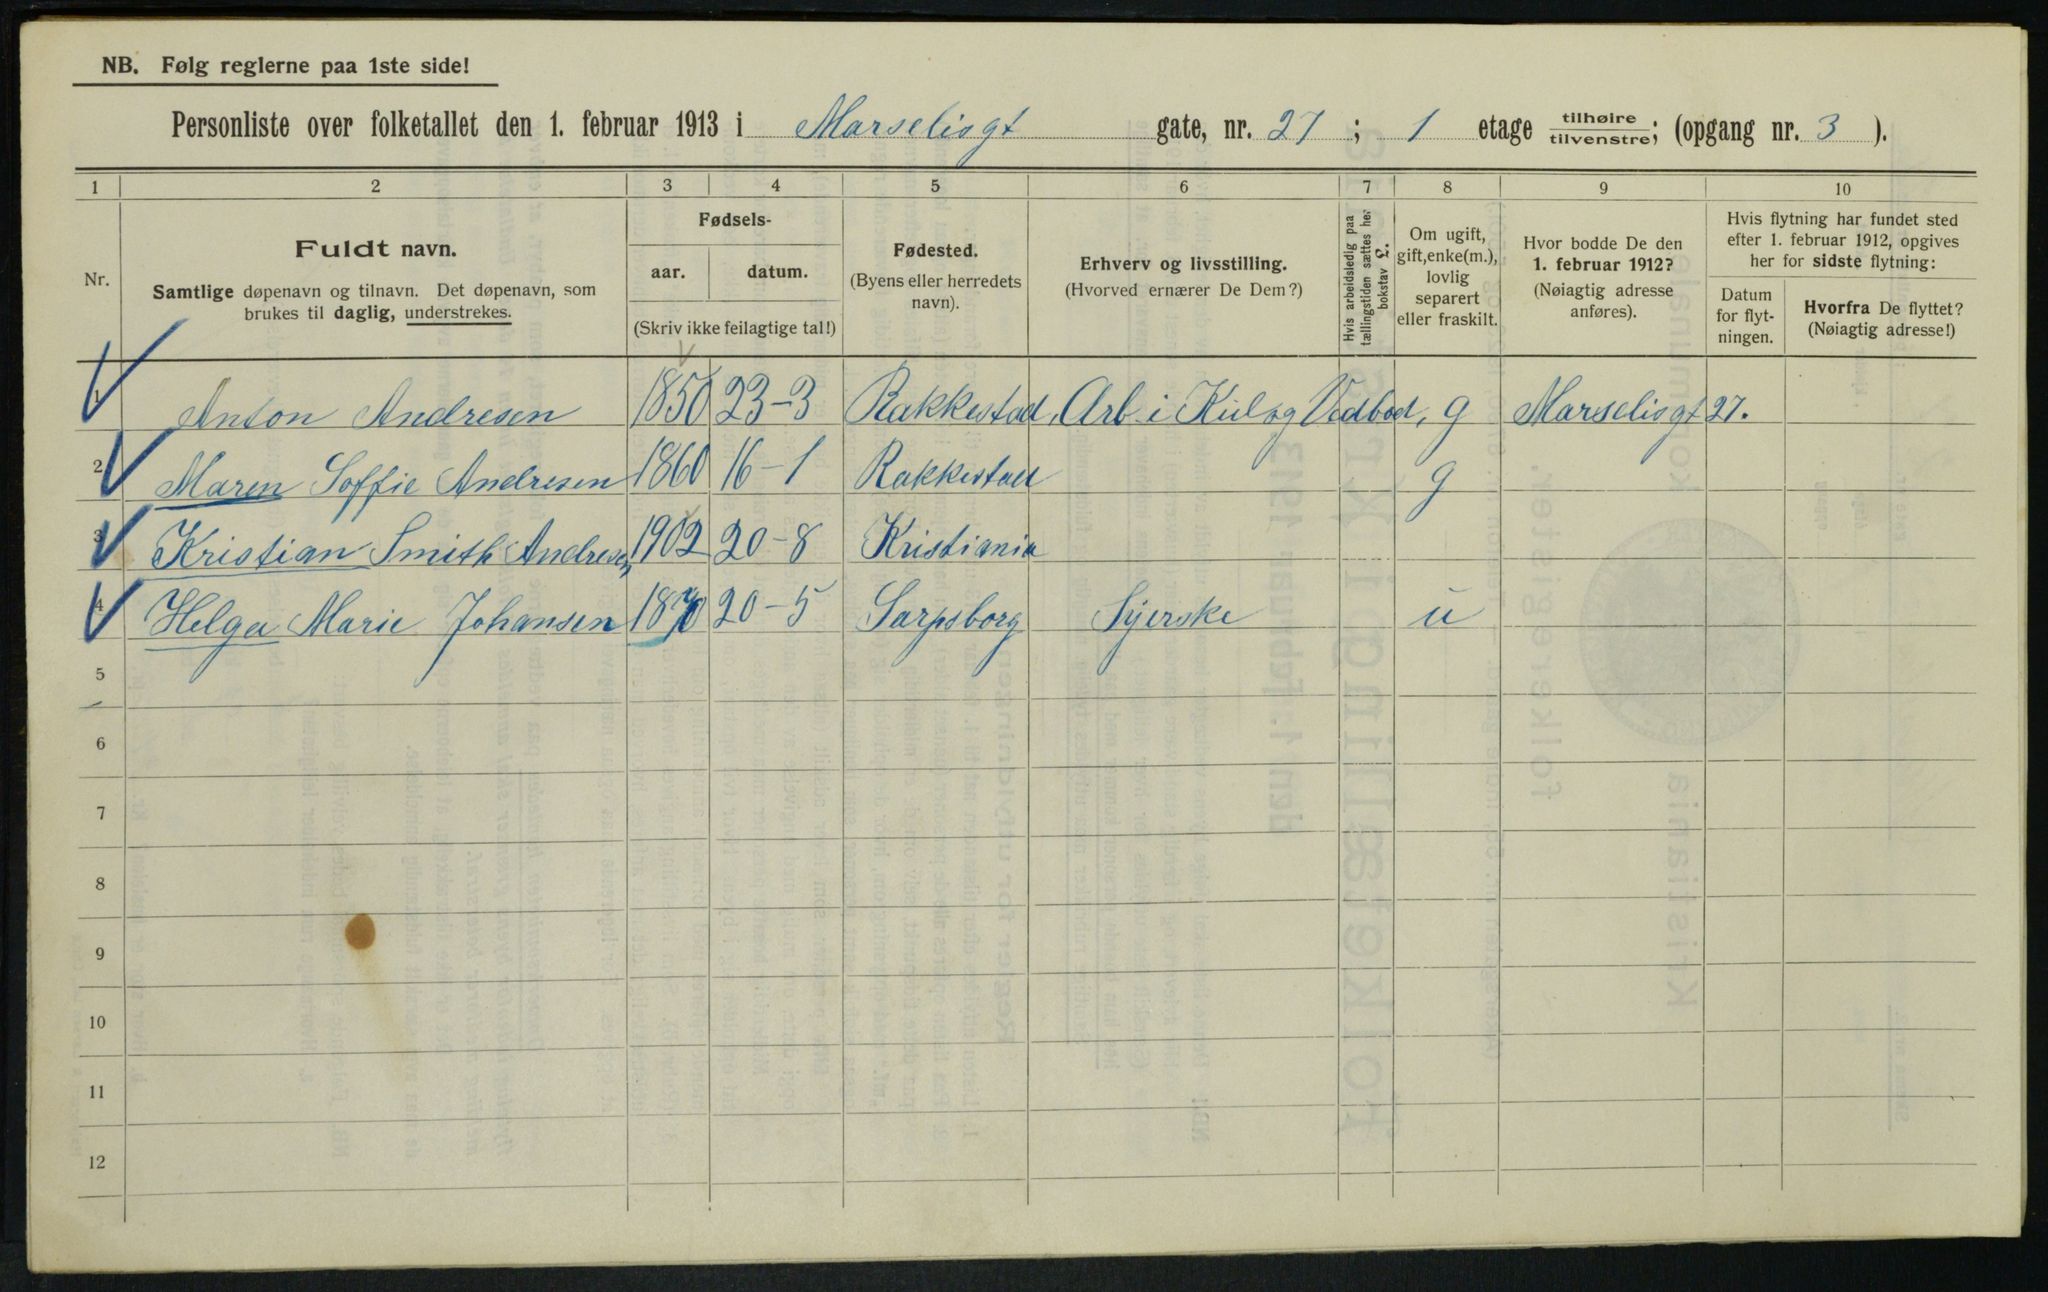 NB. Følg reglerne paa 1ste side!
Personliste over folketallet den 1. februar 1913 i Marselisgt gate, nr. 27; 1 etage tilhøire/tilvenstre; (opgang nr. 3 ).
1 2 3 4 5 6 7 8 9 10
Nr.
Fuldt navn.
Samtlige døpenavn og tilnavn. Det døpenavn, som
brukes til daglig, understrekes.
Fødsels-
aar. datum.
(Skriv ikke feilagtige tal!)
Fødested.
(Byens eller herredets
navn).
Erhverv og livsstilling.
(Hvorved ernærer De Dem?)
Hvis arbeidsledig paa
tællingstiden sættes her
bokstav L.
Om ugift,
gift, enke(m.),
lovlig
separert
eller fraskilt.
Hvor bodde De den
1. februar 1912?
(Nøiagtig adresse
anføres).
Hvis flytning har fundet sted
efter 1. februar 1912, opgives
her for sidste flytning:
Datum
for flyt-
ningen.
Hvorfra De flyttet?
(Nøiagtig adresse!)
1 Anton Andresen 1850 23-3 Rakkestad, Arb. i Kul og Vedbod, g Marselisgt 27.
2 Maren Soffie Andresen 1860 16-1 Rakkestad g
3 Kristian Smith Andresen 1902 20-8 Kristiania
4 Helga Marie Johansen 20-5 Sarpsborg Syerske u
5
6
7
8
9
10
11
12